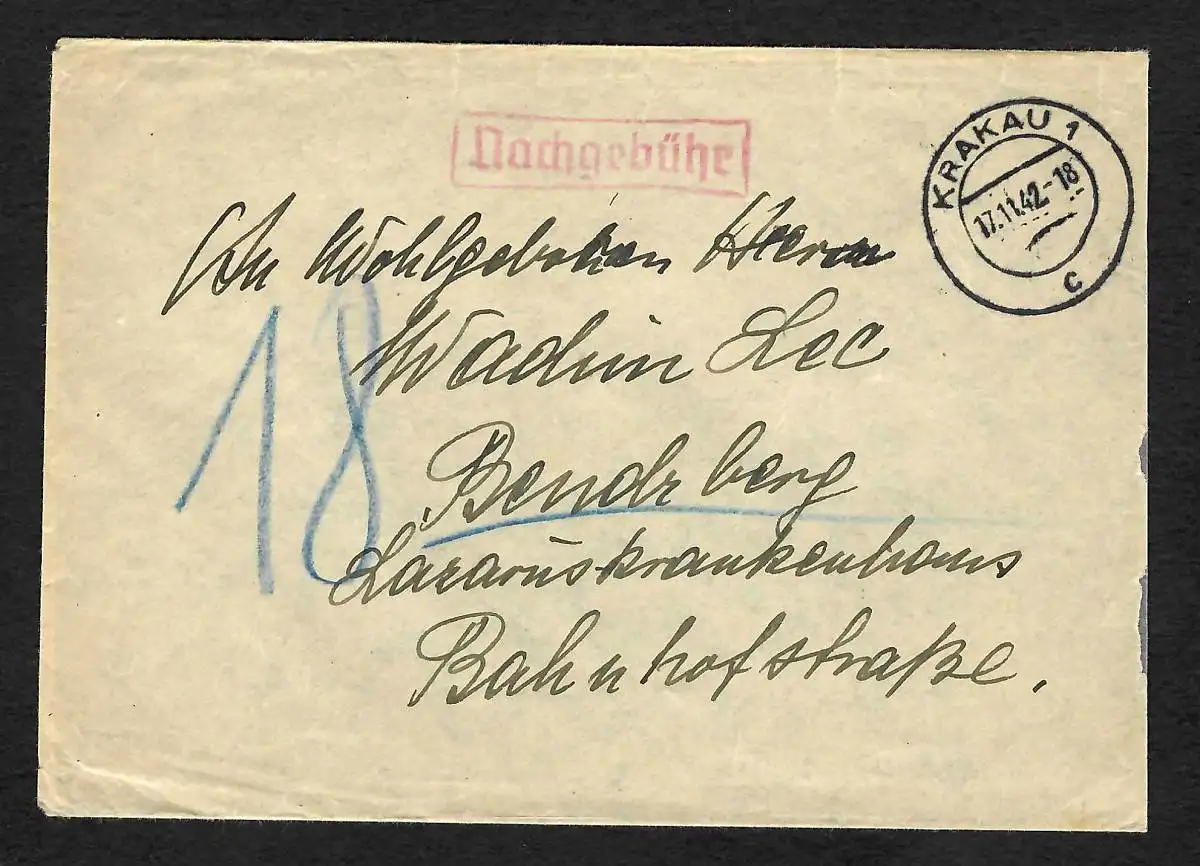 Nachgebühr
KRAKAU 1
17.11.42-18
c
An Wohlgeboren Herrn
18
Wadim Lec
Bendzberg
Lazaruskrankenhaus
Bahnhofstraße.